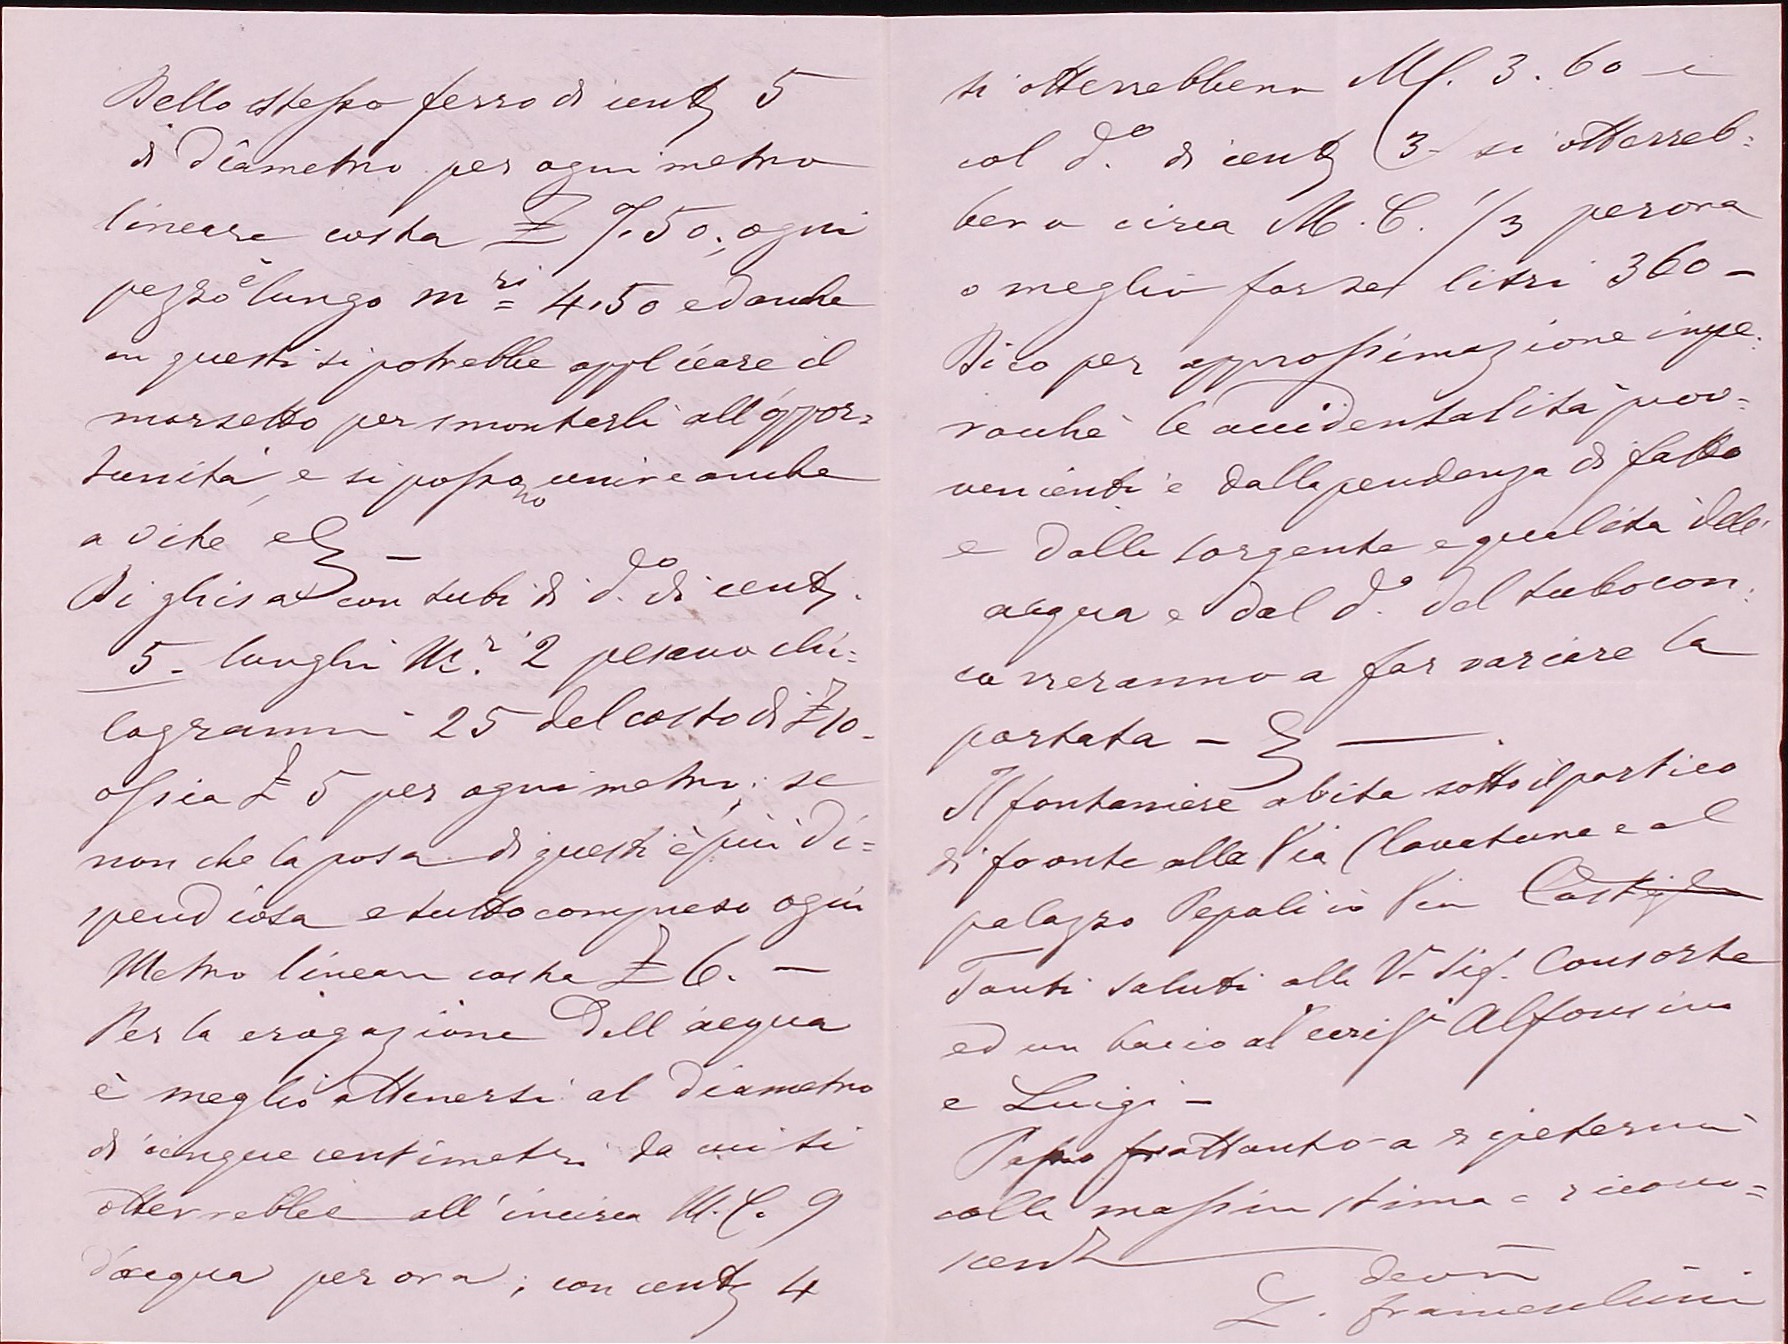 Dello stesso ferro di cent. 5
di diametro per ogni metro
lineare costa £ 7.50; ogni
pezzo è lungo mri 4.50 ed anche
in questi si potrebbe applicare il
morsetto per smontarli all'oppor=
tunità, e si possono unire anche
a vite e
Di ghisa con tubi di d.o di cent.
5. lunghi M.r 2 pesano chi=
logrammi 25 del costo di £ 10.
ossia £ 5 per ogni metro; se
non che la posa di questi è più di=
spendiosa e tutto compreso ogni
Metro lineare costa £ 6. —
Per la erogazione dell'acqua
è meglio attenersi al diametro
di cinque centimetri da cui si
otterrebbe all'incirca M.C. 9
d'acqua per ora; con cent. 4
si otterrebbero M.C. 3.60 e
col d.o di cent. 3 si otterreb=
bero circa M.C. 1/3 per ora
o meglio forse litri 360 —
Dico per approssimazione impe=
rocchè le accidentalità prov=
venienti e dalla pendenza di fatto
e dalla sorgente e qualità dell'
acqua e dal d.o del tubo con=
correranno a far variare la
portata —
Il fontaniere abita sotto il portico
di fronte alla Via Clavature e al
palazzo Pepoli in Via Castigl
Tanti saluti alla V. Sig. Consorte
ed un bacio ai Alfonsina
e Luigi —
Passo frattanto a ripetermi
colla massima stima e ricono=
scenza
devmo
L.